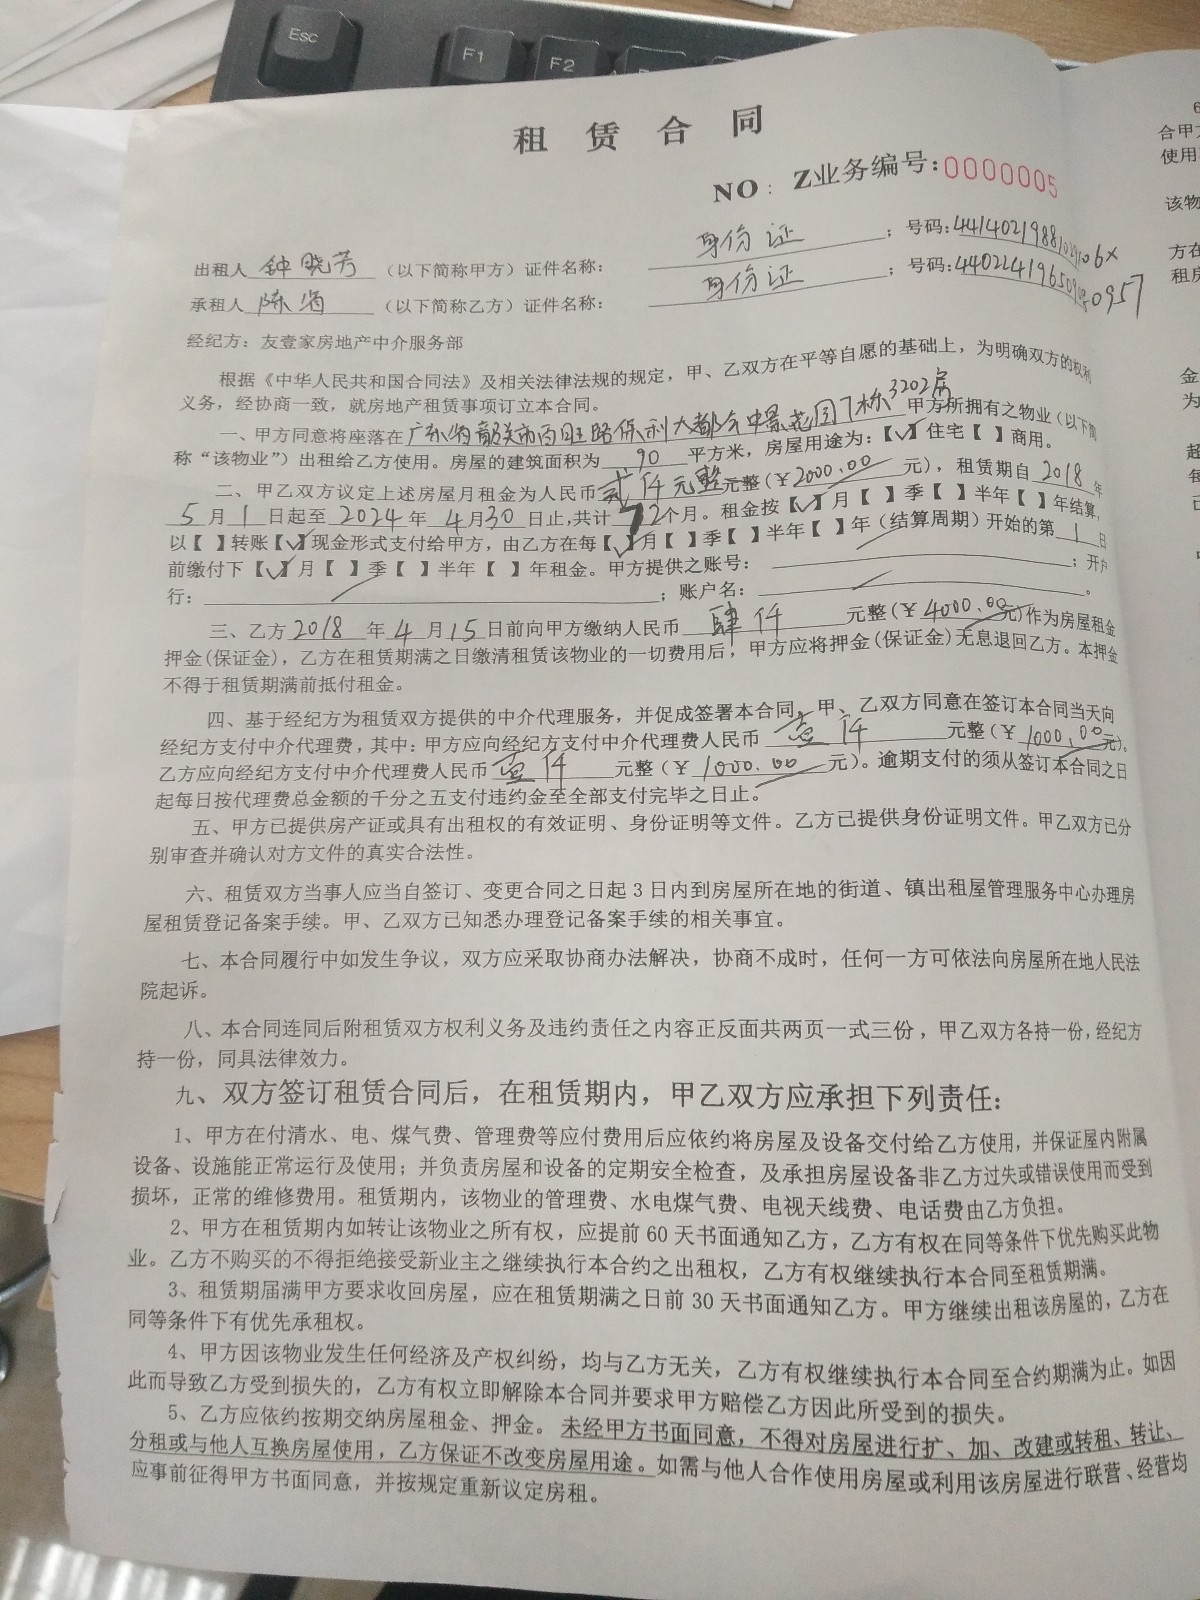 Esc
F1
F2
租 赁 合 同
NO： Z业务编号：0000005
出租人 钟晓芳 （以下简称甲方）证件名称： 身份证 ；号码：
承租人 陈 （以下简称乙方）证件名称： 身份证 ；号码：
经纪方：友壹家房地产中介服务部
根据《中华人民共和国合同法》及相关法律法规的规定，甲、乙双方在平等自愿的基础上，为明确双方的权利
义务，经协商一致，就房地产租赁事项订立本合同。
一、甲方同意将座落在 广东省韶关市百旺路保利大都会中景花园7栋3202房 甲方所拥有之物业（以下简
称“该物业”）出租给乙方使用。房屋的建筑面积为 90 平方米，房屋用途为：【√】住宅【 】商用。
二、甲乙双方议定上述房屋月租金为人民币 贰仟元整 元整（￥2000.00 元），租赁期自 2018 年
5 月 1 日起至 2024 年 4 月 30 日止，共计 72 个月。租金按【√】月【 】季【 】半年【 】年结算，
以【 】转账【√】现金形式支付给甲方，由乙方在每【√】月【 】季【 】半年【 】年（结算周期）开始的第 1 日
前缴付下【√】月【 】季【 】半年【 】年租金。甲方提供之账号： ；开户
行： ；账户名： 。
三、乙方 2018 年 4 月 15 日前向甲方缴纳人民币 肆仟 元整（￥ 4000.00 元）作为房屋租金
押金(保证金)，乙方在租赁期满之日缴清租赁该物业的一切费用后，甲方应将押金(保证金)无息退回乙方。本押金
不得于租赁期满前抵付租金。
四、基于经纪方为租赁双方提供的中介代理服务，并促成签署本合同，甲、乙双方同意在签订本合同当天向
经纪方支付中介代理费，其中：甲方应向经纪方支付中介代理费人民币 壹仟 元整（￥ 1000.00 元)。
乙方应向经纪方支付中介代理费人民币 壹仟 元整（￥ 1000.00 元）。逾期支付的须从签订本合同之日
起每日按代理费总金额的千分之五支付违约金至全部支付完毕之日止。
五、甲方已提供房产证或具有出租权的有效证明、身份证明等文件。乙方已提供身份证明文件。甲乙双方已分
别审查并确认对方文件的真实合法性。
六、租赁双方当事人应当自签订、变更合同之日起 3 日内到房屋所在地的街道、镇出租屋管理服务中心办理房
屋租赁登记备案手续。甲、乙双方已知悉办理登记备案手续的相关事宜。
七、本合同履行中如发生争议，双方应采取协商办法解决，协商不成时，任何一方可依法向房屋所在地人民法
院起诉。
八、本合同连同后附租赁双方权利义务及违约责任之内容正反面共两页一式三份，甲乙双方各持一份，经纪方
持一份，同具法律效力。
九、双方签订租赁合同后，在租赁期内，甲乙双方应承担下列责任：
1、甲方在付清水、电、煤气费、管理费等应付费用后应依约将房屋及设备交付给乙方使用，并保证屋内附属
设备、设施能正常运行及使用；并负责房屋和设备的定期安全检查，及承担房屋设备非乙方过失或错误使用而受到
损坏，正常的维修费用。租赁期内，该物业的管理费、水电煤气费、电视天线费、电话费由乙方负担。
2、甲方在租赁期内如转让该物业之所有权，应提前 60 天书面通知乙方，乙方有权在同等条件下优先购买此物
业。乙方不购买的不得拒绝接受新业主之继续执行本合约之出租权，乙方有权继续执行本合同至租赁期满。
3、租赁期届满甲方要求收回房屋，应在租赁期满之日前 30 天书面通知乙方。甲方继续出租该房屋的，乙方在
同等条件下有优先承租权。
4、甲方因该物业发生任何经济及产权纠纷，均与乙方无关，乙方有权继续执行本合同至合约期满为止。如因
此而导致乙方受到损失的，乙方有权立即解除本合同并要求甲方赔偿乙方因此所受到的损失。
5、乙方应依约按期交纳房屋租金、押金。未经甲方书面同意，不得对房屋进行扩、加、改建或转租、转让、
分租或与他人互换房屋使用，乙方保证不改变房屋用途。如需与他人合作使用房屋或利用该房屋进行联营、经营均
应事前征得甲方书面同意，并按规定重新议定房租。
合甲方
使用
该物
方在
租房
金
为
超
每